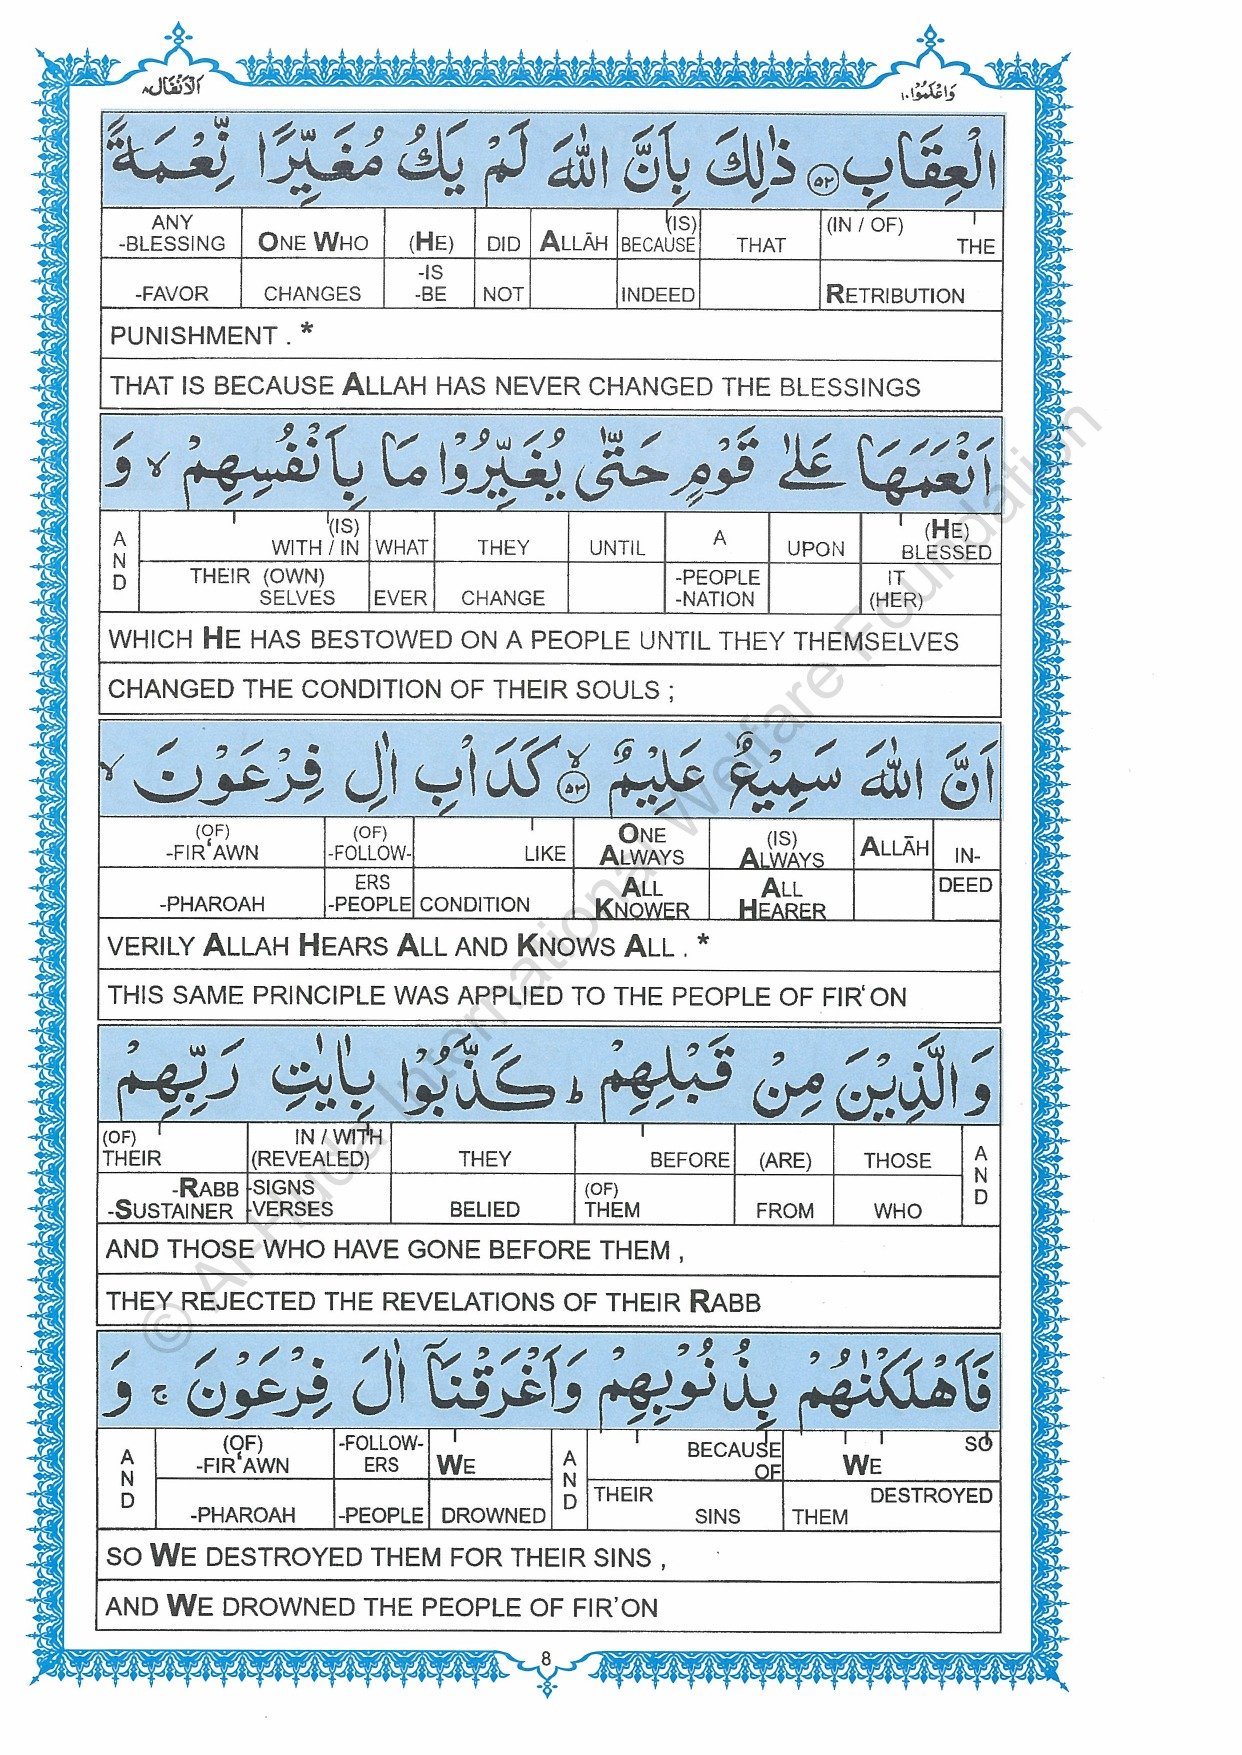 الأنفال ٨
واعلموا ١٠
الْعِقَابِ ﴿٥٢﴾ ذٰلِكَ بِاَنَّ اللّٰهَ لَمْ يَكُ مُغَيِّرًا نِّعْمَةً
ANY (IS) (IN / OF)
-BLESSING ONE WHO (HE) DID ALLĀH BECAUSE THAT THE
-IS
-FAVOR CHANGES -BE NOT INDEED RETRIBUTION
PUNISHMENT . *
THAT IS BECAUSE ALLAH HAS NEVER CHANGED THE BLESSINGS
اَنْعَمَهَا عَلٰى قَوْمٍ حَتّٰى يُغَيِّرُوْا مَا بِاَنْفُسِهِمْ ۙ وَ
AND (IS) A (HE)
WITH / IN WHAT THEY UNTIL UPON BLESSED
THEIR (OWN) -PEOPLE IT
SELVES EVER CHANGE -NATION (HER)
WHICH HE HAS BESTOWED ON A PEOPLE UNTIL THEY THEMSELVES
CHANGED THE CONDITION OF THEIR SOULS ;
اَنَّ اللّٰهَ سَمِيْعٌ عَلِيْمٌ ﴿٥٣﴾ ۙ كَدَاْبِ اٰلِ فِرْعَوْنَ ۙ
(OF) (OF) ONE (IS)
-FIR‘AWN -FOLLOW- LIKE ALWAYS ALWAYS ALLĀH IN-
ERS ALL ALL DEED
-PHAROAH -PEOPLE CONDITION KNOWER HEARER
VERILY ALLAH HEARS ALL AND KNOWS ALL . *
THIS SAME PRINCIPLE WAS APPLIED TO THE PEOPLE OF FIR‘ON
وَالَّذِيْنَ مِنْ قَبْلِهِمْ ؕ كَذَّبُوْا بِاٰيٰتِ رَبِّهِمْ
(OF) IN / WITH AND
THEIR (REVEALED) THEY BEFORE (ARE) THOSE
-RABB -SIGNS (OF)
-SUSTAINER -VERSES BELIED THEM FROM WHO
AND THOSE WHO HAVE GONE BEFORE THEM ,
THEY REJECTED THE REVELATIONS OF THEIR RABB
فَاَهْلَكْنٰهُمْ بِذُنُوْبِهِمْ وَاَغْرَقْنَاۤ اٰلَ فِرْعَوْنَ ۚ وَ
AND (OF) -FOLLOW- AND BECAUSE SO
-FIR‘AWN ERS WE OF WE
THEIR DESTROYED
-PHAROAH -PEOPLE DROWNED SINS THEM
SO WE DESTROYED THEM FOR THEIR SINS ,
AND WE DROWNED THE PEOPLE OF FIR’ON
8
© Al-Huda International Welfare Foundation